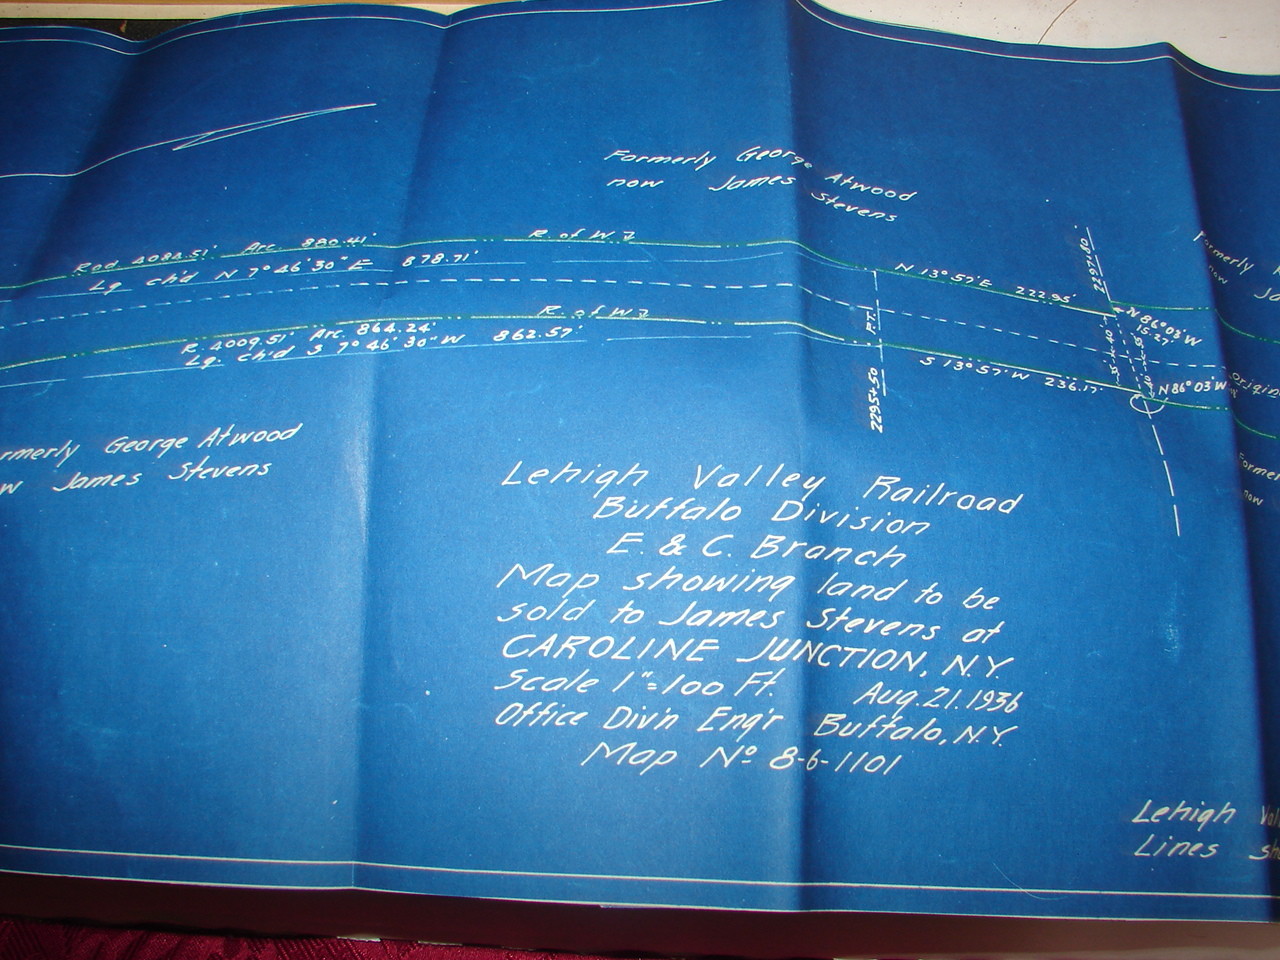 Formerly George Atwood
now James Stevens
Rad 4084.51' Arc. 880.41'
Lg. ch'd N 7° 46' 30" E 878.71'
R. of W.
R. 4009.51' Arc. 864.24'
Lg. ch'd S 7° 46' 30" W 862.57'
R. of W.
N 13° 57' E 222.95'
S 13° 57' W 236.17'
2295+50 P.T.
2297+80
N 86° 03' W
15.27'
N 86° 03' W
Formerly
now Ja
origin
Former
now
rmerly George Atwood
w James Stevens
Lehigh Valley Railroad
Buffalo Division
E. & C. Branch
Map showing land to be
sold to James Stevens at
CAROLINE JUNCTION, N.Y.
Scale 1"=100 Ft. Aug. 21. 1936
Office Div'n Eng'r Buffalo, N.Y.
Map Nº 8-6-1101
Lehigh Val
Lines sh